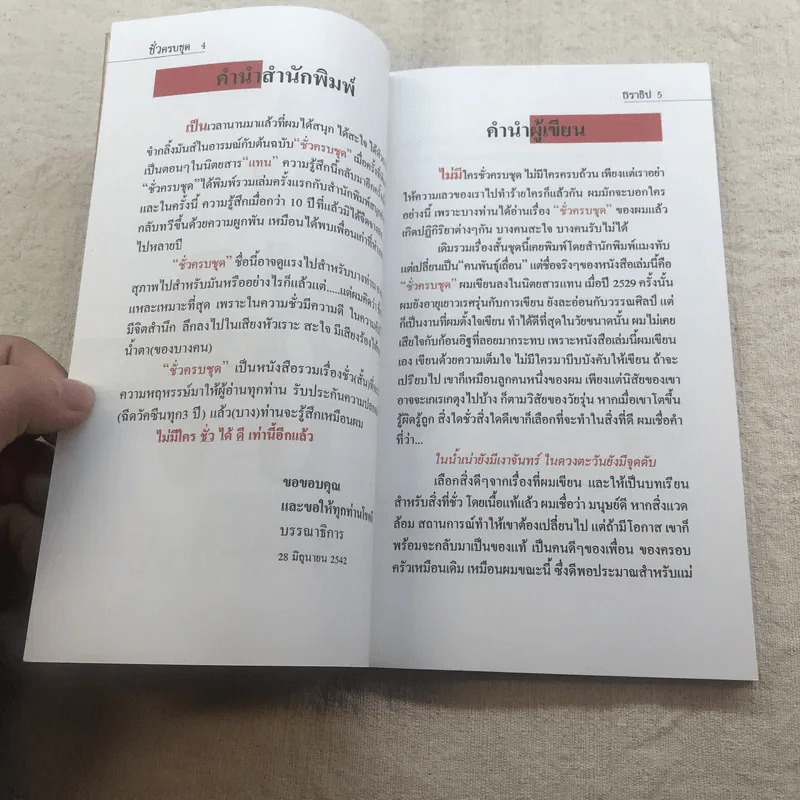 ชั่วครบชุด 4
คำนำสำนักพิมพ์
เป็นเวลานานมาแล้วที่ผมได้สนุก ได้สะใจ ได้
ขำกลิ้งมันส์ในอารมณ์กับต้นฉบับ "ชั่วครบชุด" เมื่อครั้ง
เป็นตอนๆในนิตยสาร "แทน" ความรู้สึกนี้กลับมาอีกครั้ง
"ชั่วครบชุด" ได้พิมพ์รวมเล่มครั้งแรกกับสำนักพิมพ์
และในครั้งนี้ ความรู้สึกเมื่อกว่า 10 ปีที่แล้วมิได้จืดจาง
กลับทวีขึ้นด้วยความผูกพัน เหมือนได้พบเพื่อนเก่าที่
ไปหลายปี
"ชั่วครบชุด" ชื่อนี้อาจดูแรงไปสำหรับบางท่าน
สุภาพไปสำหรับมันหรืออย่างไรก็แล้วแต่.....แต่ผมคิดว่า
แหละเหมาะที่สุด เพราะในความชั่วมีความดี ในความ
มีจิตสำนึก ลึกลงไปในเสียงหัวเราะ สะใจ มีเสียงร้องไห้
น้ำตา(ของบางคน)
"ชั่วครบชุด" เป็นหนังสือรวมเรื่องชั่ว(สั้น)ที่
ความหฤหรรษ์มาให้ผู้อ่านทุกท่าน รับประกันความปลอด
(ฉีดวัคซีนทุก3 ปี) แล้ว(บาง)ท่านจะรู้สึกเหมือนผม
ไม่มีใคร ชั่ว ได้ ดี เท่านี้อีกแล้ว
ขอขอบคุณ
และขอให้ทุกท่านโชคดี
บรรณาธิการ
28 มิถุนายน 2542
ธิราธิป 5
คำนำผู้เขียน
ไม่มีใครชั่วครบชุด ไม่มีใครครบถ้วน เพียงแต่เราอย่า
ให้ความเลวของเราไปทำร้ายใครก็แล้วกัน ผมมักจะบอกใคร
อย่างนี้ เพราะบางท่านได้อ่านเรื่อง "ชั่วครบชุด" ของผมแล้ว
เกิดปฏิกิริยาต่างๆกัน บางคนสะใจ บางคนรับไม่ได้
เดิมรวมเรื่องสั้นชุดนี้เคยพิมพ์โดยสำนักพิมพ์แมงทับ
แต่เปลี่ยนเป็น"คนพันธุ์เถื่อน" แต่ชื่อจริงๆของหนังสือเล่มนี้คือ
"ชั่วครบชุด" ผมเขียนลงในนิตยสารแทน เมื่อปี 2529 ครั้งนั้น
ผมยังอายุเยาวเรศรุ่นกับการเขียน ยังละอ่อนกับวรรณศิลป์ แต่
ก็เป็นงานที่ผมตั้งใจเขียน ทำได้ดีที่สุดในวัยขนาดนั้น ผมไม่เคย
เสียใจกับก้อนอิฐที่ลอยมากระทบ เพราะหนังสือเล่มนี้ผมเขียน
เอง เขียนด้วยความเต็มใจ ไม่มีใครมาบีบบังคับให้เขียน ถ้าจะ
เปรียบไป เขาก็เหมือนลูกคนหนึ่งของผม เพียงแต่นิสัยของเขา
อาจจะเกเรเกตุงไปบ้าง ก็ตามวิสัยของวัยรุ่น หากเมื่อเขาโตขึ้น
รู้ผิดรู้ถูก สิ่งใดชั่วสิ่งใดดีเขาก็เลือกที่จะทำในสิ่งที่ดี ผมเชื่อคำ
ที่ว่า...
ในน้ำเน่ายังมีเงาจันทร์ ในดวงตะวันยังมีจุดดับ
เลือกสิ่งดีๆจากเรื่องที่ผมเขียน และให้เป็นบทเรียน
สำหรับสิ่งที่ชั่ว โดยเนื้อแท้แล้ว ผมเชื่อว่า มนุษย์ดี หากสิ่งแวด
ล้อม สถานการณ์ทำให้เขาต้องเปลี่ยนไป แต่ถ้ามีโอกาส เขาก็
พร้อมจะกลับมาเป็นของแท้ เป็นคนดีๆของเพื่อน ของครอบ
ครัวเหมือนเดิม เหมือนผมขณะนี้ ซึ่งดีพอประมาณสำหรับแม่